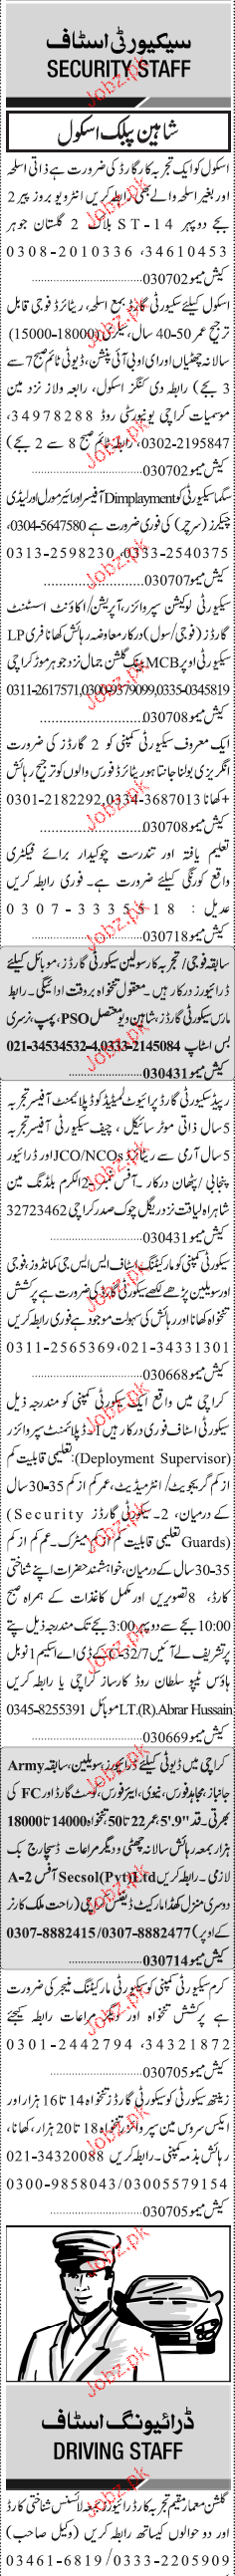 سیکیورٹی اسٹاف
SECURITY STAFF
شاہین پبلک اسکول
اسکول کو ایک تجربہ کار گارڈ کی ضرورت ہے ذاتی اسلحہ
اور بغیر اسلحہ والے بھی رابطہ کریں انٹرویو بروز پیر 2
بجے دوپہر ST-14 بلاک 2 گلستان جوہر
0308-2010336 ،34610453
کیش میمو 030702
اسکول کیلئے سیکورٹی گارڈ بمع اسلحہ، ریٹائرڈ فوجی قابل
ترجیح عمر 40-50 سال، سیلری (18000-15000)
سالانہ چھٹیاں اور ای او بی آئی پنشن، ڈیوٹی ٹائم صبح 7 سے
3 بجے) رابطہ دی کنگز اسکول، رابعہ ولاز نزد مین
موسمیات کراچی یونیورسٹی روڈ 34978288،
0302-2195847، رابطہ ٹائم صبح 8 سے 2 بجے)
کیش میمو 030702
سگما سیکورٹی کو Dimplayment آفیسر اور ائیر مورل اور لیڈی
چیکرز (سرچر) کی فوری ضرورت ہے 5647580-0304،
0313-2598230 ,0333-2540375
کیش میمو 030707
سیکورٹی لوکیشن سپروائزر، آپریشن/اکاؤنٹ اسسٹنٹ
گارڈز (فوجی/سول) درکار معاوضہ رہائش کھانا فری LP
سیکورٹی اوپر MCB بینک گلشن جمال نزد جوہر موڑ کراچی
0311-2617571,0300-9379099,0335-0345819
کیش میمو 030708
ایک معروف سیکورٹی کمپنی کو 2 گارڈز کی ضرورت
انگریزی بولنا جانتا ہو ریٹائرڈ فورس والوں کو ترجیح رہائش
+ کھانا 0301-2182292,0334-3687013
کیش میمو 030708
تعلیم یافتہ اور تندرست چوکیدار برائے فیکٹری
واقع کورنگی کیلئے ضرورت ہے۔ فوری رابطہ کریں
عدیل : 0307-3335518
کیش میمو 030718
سابقہ فوجی/ تجربہ کار سولین سیکورٹی گارڈز، موبائل کیلئے
ڈرائیورز درکار ہیں۔ معقول تنخواہ بروقت ادائیگی۔ رابطہ
مارس سیکورٹی گارڈز، شاہین ویو متصل PSO پمپ، نرسری
بس اسٹاپ 021-34534532-4,0333-2145084
کیش میمو 030431
ریپڈ سیکورٹی گارڈ پرائیوٹ لمیٹیڈ کو ڈپلائمنٹ آفیسر تجربہ
5 سال ذاتی موٹر سائیکل، چیف سیکورٹی آفیسر تجربہ
5 سال آرمی سے ریٹائرڈ JCO/NCOs اور ڈرائیور
پنجابی/پٹھان درکار۔ آفس نمبر 2 اکرم بلڈنگ مین
شاہراہ لیاقت نزد ریگل چوک صدر کراچی 32723462
کیش میمو 030431
سیکورٹی کمپنی کو مارکیٹنگ اسٹاف ایس ایس جی کمانڈوز، فوجی
اور سویلین پڑھے لکھے سیکورٹی گارڈ کی ضرورت ہے پرکشش
تنخواہ کھانا اور رہائش کی سہولت موجود ہے فوری رابطہ کریں
0311-2565369،021-34331301
کیش میمو 030668
کراچی میں واقع ایک سیکورٹی کمپنی کو مندرجہ ذیل
سیکورٹی اسٹاف فوری درکار ہیں 1۔ ڈپلائمنٹ سپروائزر
(Deployment Supervisor): تعلیمی قابلیت کم
از کم گریجویٹ/انٹرمیڈیٹ، عمر کم از کم 35-30 سال
کے درمیان، 2۔ سیکورٹی گارڈز (Security
Guards) تعلیمی قابلیت کم از کم میٹرک۔ عمر کم از کم
30-35 سال کے درمیان، خواہشمند حضرات اپنے شناختی
کارڈ، 8 تصویریں اور مکمل کاغذات کے ہمراہ صبح
10:00 بجے سے دوپہر 3:00 بجے تک مندرجہ ذیل پتے
پر تشریف لے آئیں C-32/7 کے ڈی اے اسکیم 1 نوبل
ہاؤس ٹیپو سلطان روڈ کارساز کراچی یا رابطہ کریں
LT.(R).Abrar Hussain موبائل 0345-8255391
کیش میمو 030669
کراچی میں ڈیوٹی کیلئے ڈرائیورز، سویلین، سابقہ Army
جانباز، مجاہد فورس، نیوی، ائیر فورس، کوسٹ گارڈ اور FC کی
بھرتی۔ قد "9.'5 عمر 22 تا 50، تنخواہ 14000 تا 18000
ہزار بمعہ رہائش سالانہ چھٹی و دیگر مراعات ڈسچارج بک
لازمی۔ رابطہ کریں Secsol(Pvt)Ltd آفس A-2
دوسری منزل کھڈا مارکیٹ ڈیفنس کراچی (راحت ملک کارنر
کے اوپر) 0307-8882415/0307-8882477
کیش میمو 030714
کرم سیکورٹی کمپنی کو سیکورٹی مارکیٹنگ منیجر کی ضرورت
ہے پرکشش تنخواہ اور دیگر مراعات رابطہ کیجئے
0301-2442794 ,34321872
کیش میمو 030705
زینتھ سیکورٹی کو سیکورٹی گارڈز تنخواہ 14 تا 16 ہزار اور
ایکس سروس مین سپروائزر تنخواہ 18 تا 20 ہزار، کھانا،
رہائش بذمہ کمپنی۔ رابطہ کریں 021-34320088
0300-9858043/03005579154
کیش میمو 030705
ڈرائیونگ اسٹاف
DRIVING STAFF
گلشن معمار مقیم تجربہ کار ڈرائیورز بمعہ لائسنس شناختی کارڈ
اور دو حوالوں کیساتھ رابطہ کریں (وکیل صاحب)
03461-6819/0333-2205909